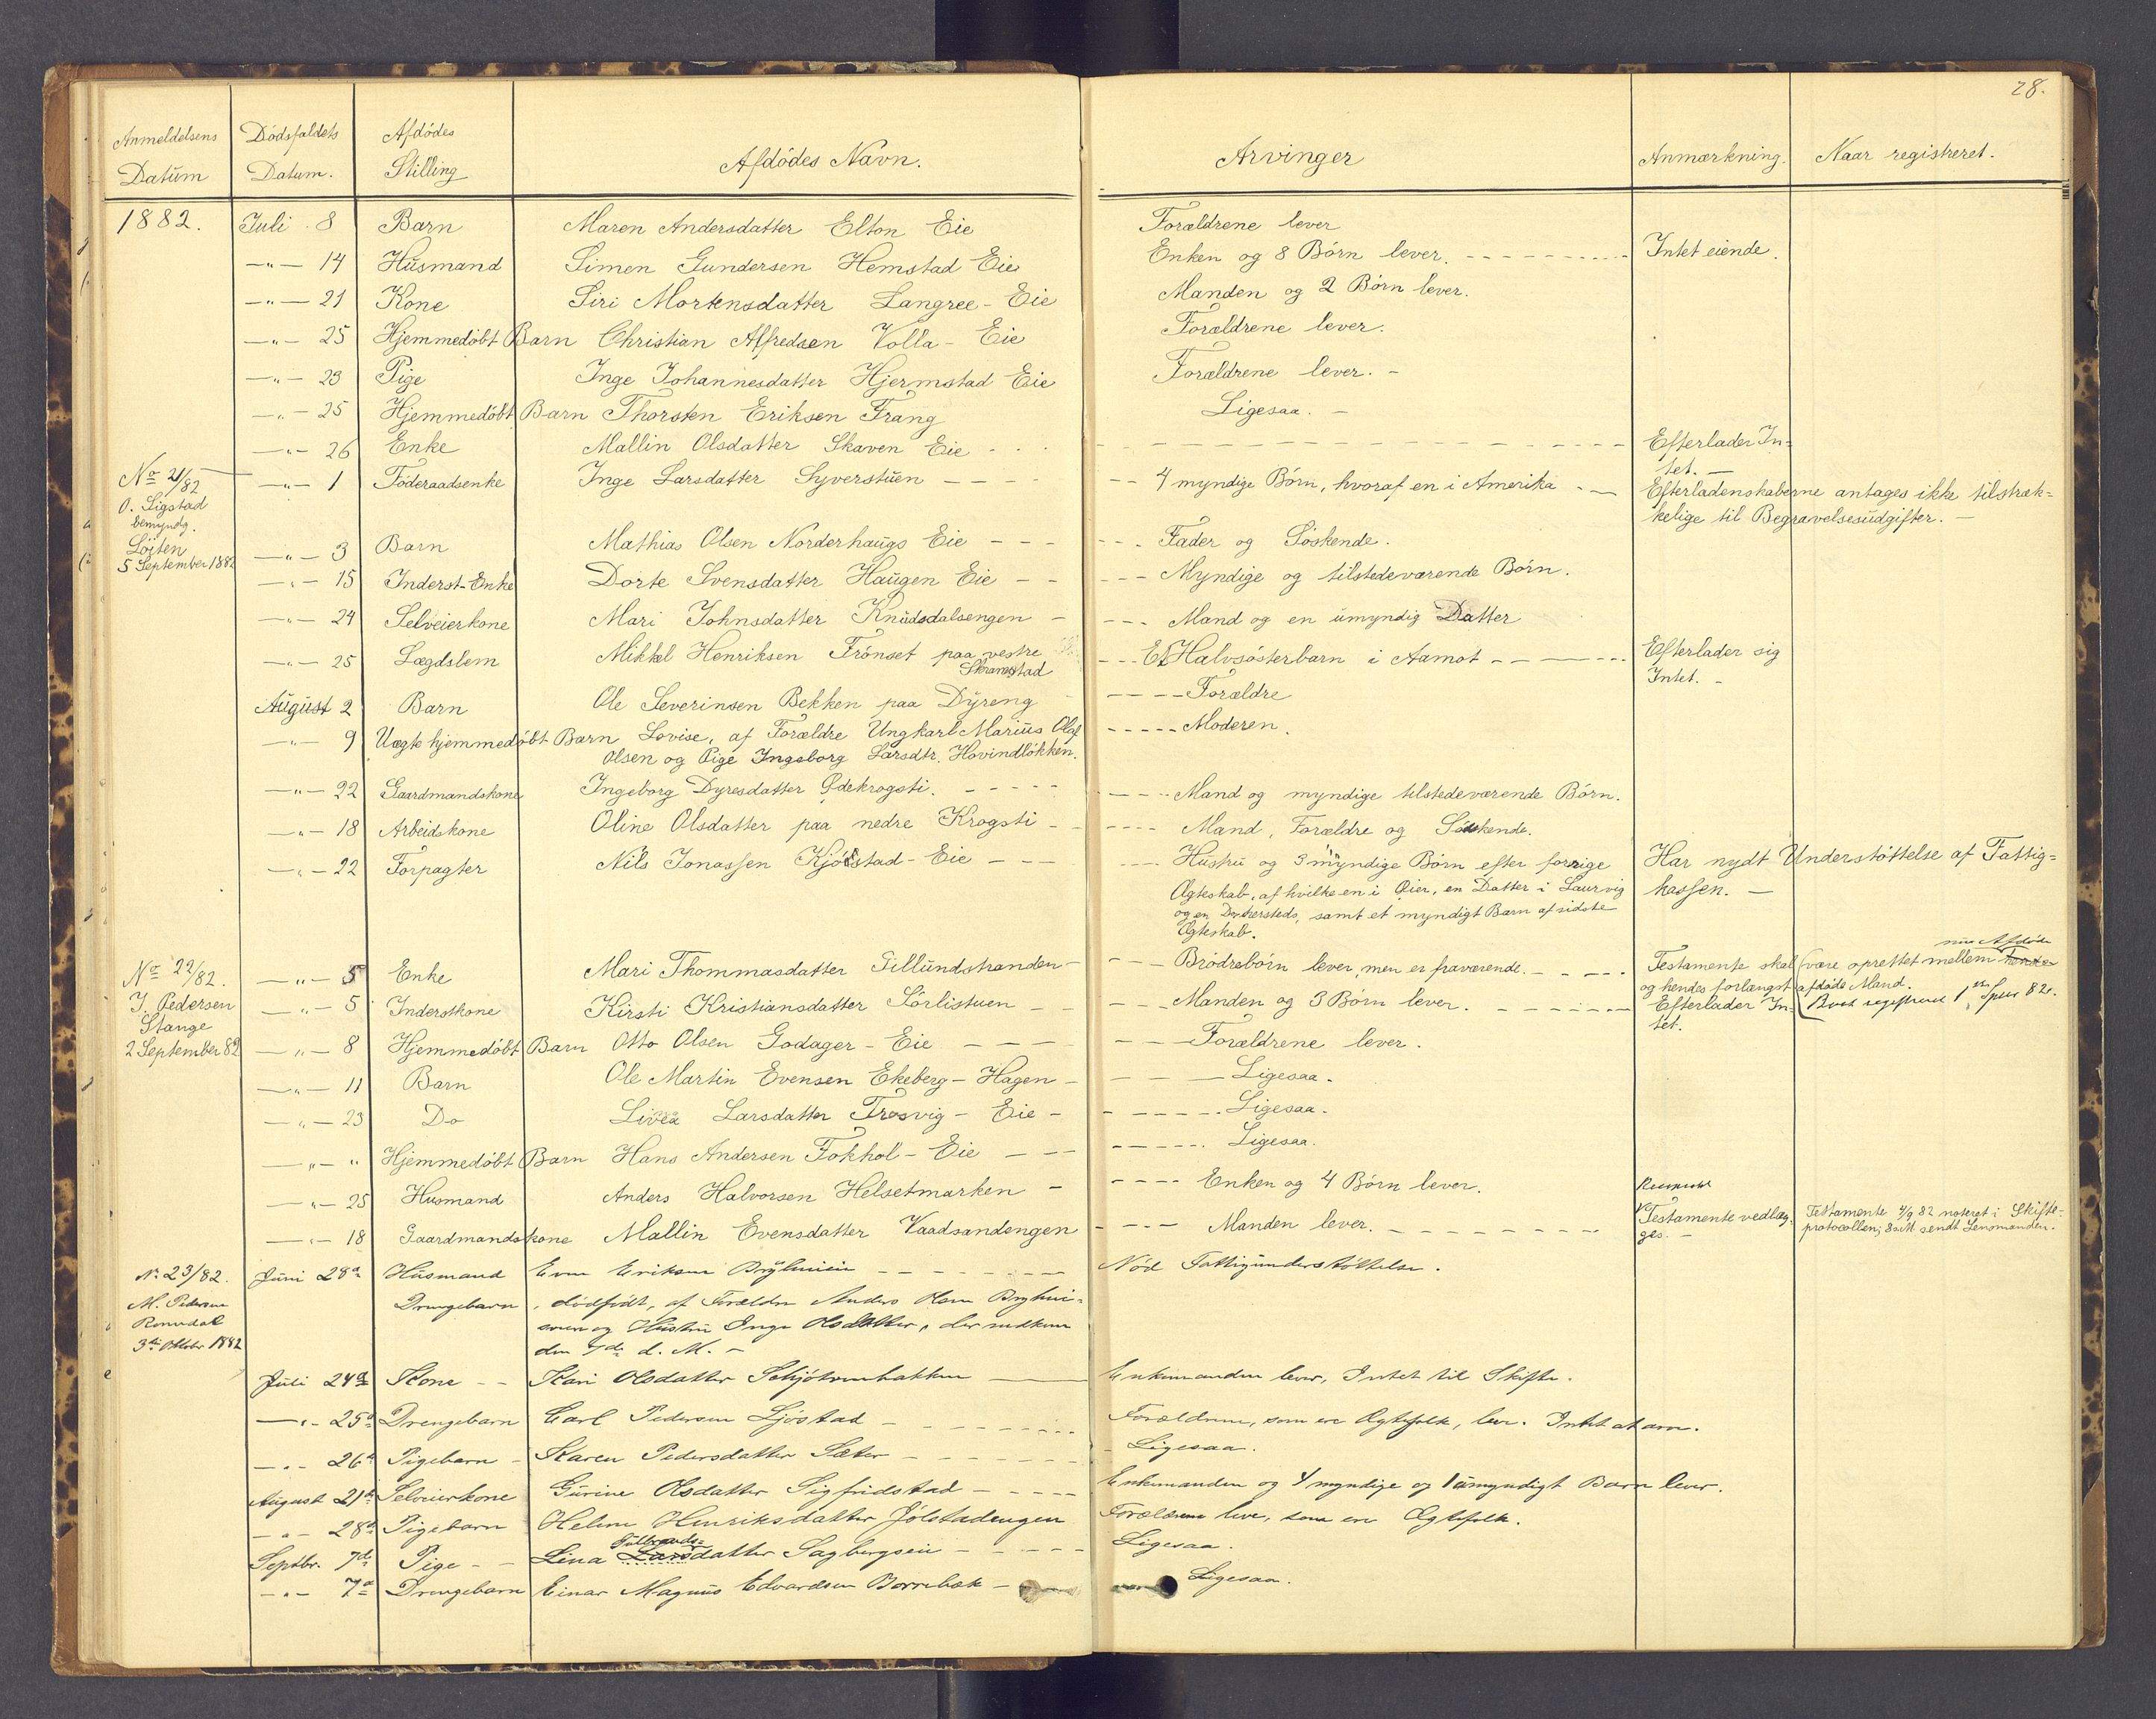 28.
Anmeldelsens Datum | Dödsfaldets Datum. | Afdödes Stilling | Afdödes Navn. | Arvinger | Anmærkning. | Naar registreret.
1882. | Juli 8 | Barn | Maren Andersdatter Elton Eie | Forældrene lever
—"— 14 | Husmand | Simen Gundersen Hemstad Eie | Enken og 8 Börn lever. | Intet eiende.
—"— 21 | Kone | Siri Mortensdatter Langree - Eie | Manden og 2 Börn lever.
—"— 25 | Hjemmedöbt Barn | Christian Alfredsen Volla - Eie | Forældrene lever.
—"— 23 | Pige | Inge Johannesdatter Hjermstad Eie | Forældrene lever. -
—"— 25 | Hjemmedöbt Barn | Thorsten Eriksen Frang | Ligesaa. -
—"— 26 | Enke | Mallin Olsdatter Skaven Eie | Efterlader In=
tet. —
No 21/82 | —"— 1 | Föderaadsenke | Inge Larsdatter Syverstuen | 4 myndige Börn, hvoraf en i Amerika | Efterladenskaberne antages ikke tilstræk=
O. Sigstad
bemyndg. | kelige til Begravelsesudgifter. —
Löiten
5 September 1882
—"— 3 | Barn | Mathias Olsen Norderhaugs Eie | Fader og Söskende.
—"— 15 | Inderst-Enke | Dorte Svensdatter Haugen Eie | Myndige og tilstedeværende Börn.
—"— 24 | Selveierkone | Mari Johnsdatter Knudsdalsengen | Mand og en umyndig Datter
—"— 25 | Lægdslem | Mikkel Henriksen Frönset paa vestre | Et Halvsösterbarn i Aamot | Efterlader sig
Skramstad | Intet. -
August 2 | Barn | Ole Severinsen Bekken paa Dyreng | Forældre
—"— 9 | Uægte hjemmedöbt Barn | Lovise, af Forældre Ungkarl Marius Olaf | Moderen.
Olsen og Pige Ingeborg Larsdtr. Hovindlökken.
—"— 22 | Gaardmandskone | Ingeborg Dyresdatter Ödekrogsti. | Mand og myndige tilstedeværende Börn.
—"— 18 | Arbeidskone | Oline Olsdatter paa nedre Krogsti | Mand, Forældre og Söskende.
—"— 22 | Forpagter | Nils Jonassen Kjöstad - Eie | Hustru og 3 myndige Börn efter forrige | Har nydt Understöttelse af Fattig=
Ægteskab, af hvilke en i Öier, en Datter i Laurvig | kassen. —
og en Do hersteds, samt et myndigt Barn af sidste
Ægteskab.
No 22/82. | —"— 5 | Enke | Mari Thommasdatter Tillundstranden | Brödrebörn lever, men er fraværende. | Testamente skal være oprettet mellem nu Afdöde
og hendes forlængst afdöde Mand.
J. Pedersen | —"— 5 | Inderstkone | Kirsti Kristiansdatter Sörlistuen | Manden og 3 Börn lever. | Efterlader In=
tet. | Boet registreret 1ste Sptbr 82.
Stange
2 September 82 | —"— 8 | Hjemmedöbt Barn | Otto Olsen Godager - Eie | Forældrene lever.
—"— 11 | Barn | Ole Martin Evensen Ekeberg - Hagen | Ligesaa.
—"— 23 | Do | Livea Larsdatter Frosvig - Eie | Ligesaa.
—"— " | Hjemmedöbt Barn | Hans Andersen Fokhol - Eie | Ligesaa.
—"— 25 | Husmand | Anders Halvorsen Helsetmarken | Enken og 4 Börn lever.
—"— 18 | Gaardmandskone | Mallin Evensdatter Vaadsandengen | Manden lever. | Testamente vedlæg-
ges. — | Testamente 4/9 82 noteret i Skifte-
protocollen; sendt Lensmanden.
No 23/82. | Juni 28de | Husmand | Even Eriksen Bryhnieie | Nöd Fattigunderstöttelse.
M. Pedersen | Drengebarn | , dödfödt, af Forældre Anders Olsen Bryhni=
Romedal | eieen og Hustru Inge Olsdatter, der nedkom
3de Oktober 1882 | den 7de d. M. -
Juli 24de | Kone | Kari Olsdatter Schjötrudbakken | Enkemanden lever, Intet til Skifte.
—"— 25de | Drengebarn | Carl Pedersen Ljöstad | Forældrene, som ere Ægtefolk, lever. Intet at arve.
—"— 26de | Pigebarn | Karen Pedersdatter Sæter | Ligesaa.
August 21de | Selveierkone | Gurine Olsdatter Sigfridstad | Enkemanden og 4 myndige og 1 umyndigt Barn lever.
—"— 28de | Pigebarn | Helene Henriksdatter Jölstadengen | Forældrene leve, som ere Ægtefolk.
Gulbrands
Septbr. 7de | Pige | Lina Larsdatter Sagbergseie | Ligesaa.
—"— 7de | Drengebarn | Einar Magnus Edvardsen Borrebæk | Ligesaa.